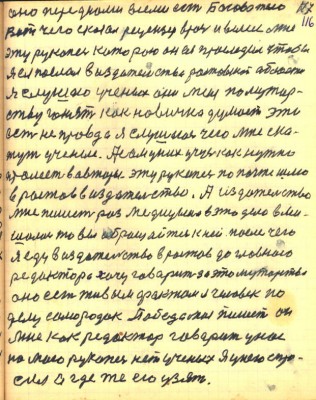 оно передками всеми ест Боговство 167
Вот чего сказал рецензер врач и велел мне 116
эту рукопес которою он прочёл чтобы
я ея послал в издательство ростовской области
я слушаю ученых они мен по мутар-
ству гонят как новичка думают это
ест не правда я слушаюся чего мне ска-
жут ученые. А самих учуся как нужно
эту рукопес по почте шлю
в ростов в издательство. А издательство
мне пишет раз медицина в это дело вме-
шалас то вы обращайтес к ней. после чего
я еду в издательство в ростов до главного
редактора хочу говорит за это мутарство
оно ест живым фактом я человек по
делу самородок Победа та пишет он
мне как редактор говорит у нас
на твою рукопес нет ученых я у него спро-
сил а где же его узят.